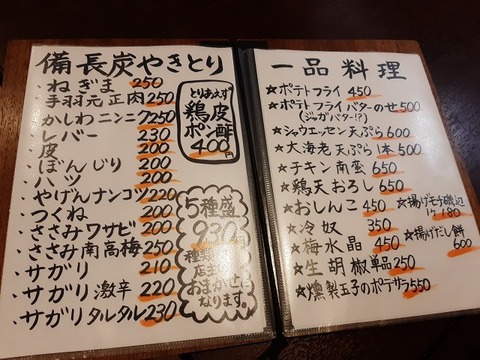 備長炭やきとり
・ねぎま 250
・手羽元正肉 250
・かしわニンニク 250
・レバー 230
・皮 200
・ぼんじり 200
・ハツ 200
・やげんナンコツ 220
・つくね 200
・ささみワサビ 200
・ささみ南高梅 250
・サガリ 210
・サガリ激辛 220
・サガリタルタル 230
とりあえず
鶏皮
ポン酢
400円
5種盛
930円
種類は
店主の
おまかせに
なります。
一品料理
★ポテトフライ 450
★ポテトフライバターのせ 500
(ジーガバター!?)
★シャウエッセン天ぷら 600
★大海老天ぷら1本 500
★チキン南蛮 650
★鶏天おろし 650
★おしんこ 450
★揚げモチ磯辺
け 180
★冷奴 350
★梅水晶 450
★揚げだし餅
600
★生胡椒単品 250
★燻製玉子のポテサラ 550